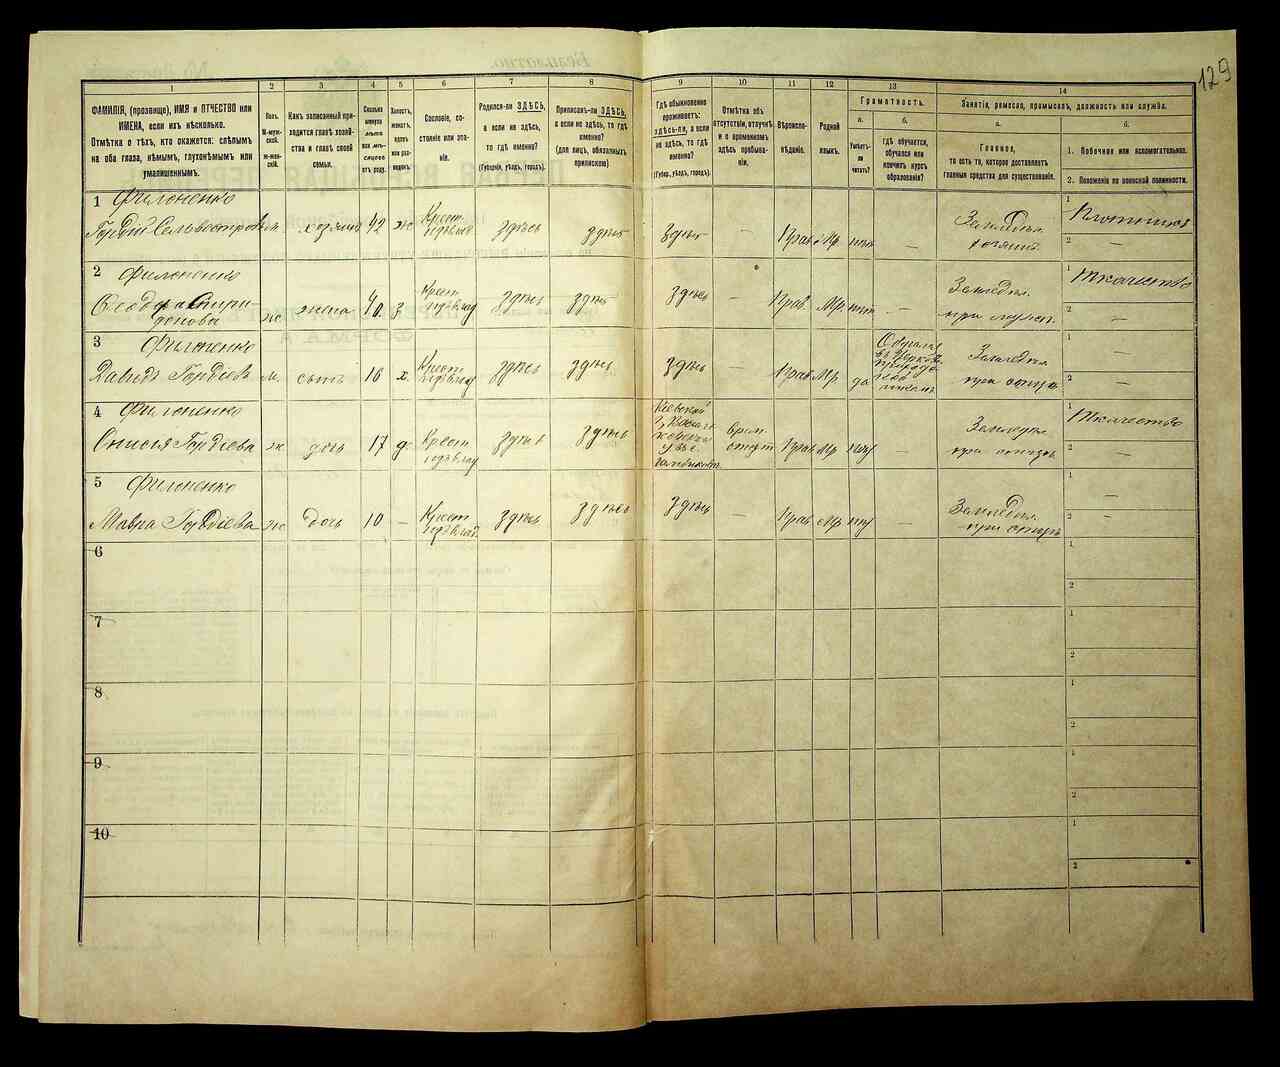 129
1
2
3
4
5
6
7
8
9
10
11
12
13
14
ФАМИЛІЯ, (прозвище), ИМЯ и ОТЧЕСТВО или
ИМЕНА, если ихъ нѣсколько.
Отмѣтка о тѣхъ, кто окажется: слѣпымъ
на оба глаза, нѣмымъ, глухонѣмымъ или
умалишеннымъ.
Полъ.
М-мужской.
ж-женскій.
Какъ записанный приходится главѣ хозяйства и главѣ своей семьи.
Сколько минуло лѣтъ или мѣсяцевъ отъ роду.
Холостъ, женатъ, вдовъ или разведенъ.
Сословіе, состояніе или званіе.
Родился-ли ЗДѢСЬ,
а если не здѣсь,
то гдѣ именно?
(Губернія, уѣздъ, городъ).
Приписанъ-ли ЗДѢСЬ,
а если не здѣсь, то гдѣ
именно?
(для лицъ, обязанныхъ
припискою)
Гдѣ обыкновенно
проживаетъ:
здѣсь-ли, а если
не здѣсь, то гдѣ
именно?
(Губер., уѣздъ, городъ).
Отмѣтка объ
отсутствіи, отлучкѣ
и о временномъ
здѣсь пребываніи.
Вѣроисповѣданіе.
Родной
языкъ.
Грамотность.
а.
Умѣетъ-ли
читать?
б.
гдѣ обучается,
обучался или
кончилъ курсъ
образованія?
Занятіе, ремесло, промыселъ, должность или служба.
а.
Главное,
то есть то, которое доставляетъ
главныя средства для существованія.
б.
1. Побочное или вспомогательное.
2. Положеніе по воинской повинности.
1 Филоненко
Гордій Сельвестровъ м. хозяинъ 42 ж здѣсь здѣсь здѣсь — Прав Мр нѣтъ —
Земледѣл. хозяинъ
1 Плотникъ
2 —
2 Филоненко
Ѳеодора Спиридонова ж жена 40. з. Крест. здѣсь здѣсь здѣсь — Прав. Мр. нѣтъ —
Земледѣл.
1 Ткачество
2 —
3 Филоненко
Давидъ Гордіевъ м. сынъ 16 х. Крест здѣсь здѣсь здѣсь — Прав Мр да
Земледѣл. при отцѣ
1 —
2 —
4 Филоненко
Онисія Гордіева ж дочь 17 д. Крест здѣсь здѣсь Кіевской — Прав Мр нѣт —
Земледѣл. при отцѣ
1 Ткачество
2 —
5 Филоненко
Мавра Гордіева ж дочь 10 — Крест здѣсь здѣсь здѣсь — Прав Мр нѣт
Земледѣл. при отцѣ
1 —
2 —
6
1
2
7
1
2
8
1
2
9
1
2
10
1
2